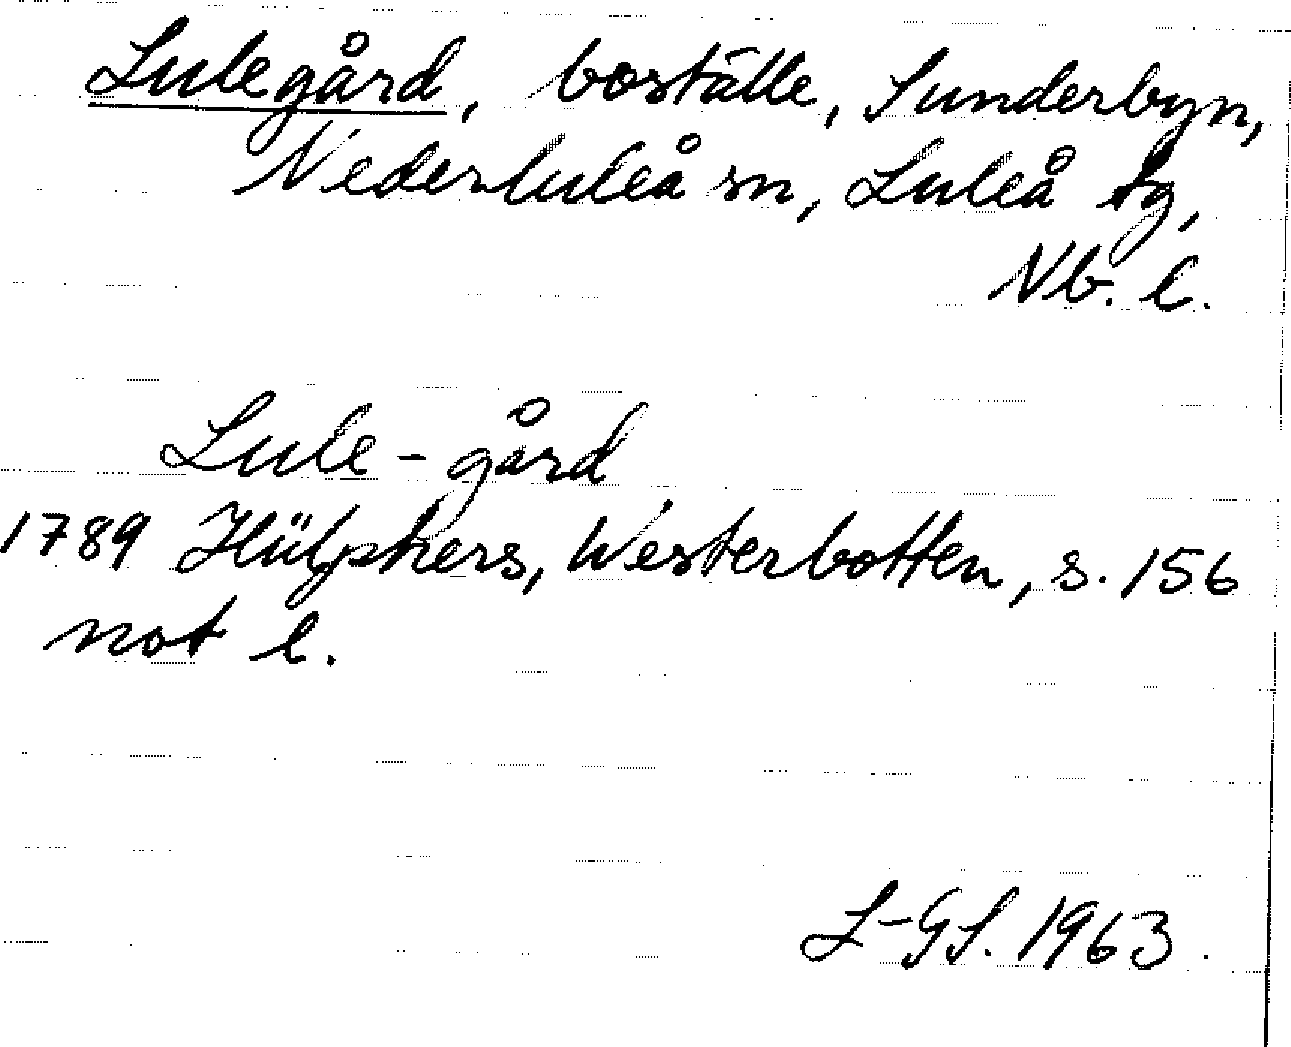 Lulegård, boställe, Sunderbyn,
Nederluleå sn, Luleå tg,
Nb. l.
Lule-gård
1789 Hülphers, Westerbotten, s. 156
not l.
L-GS. 1963.